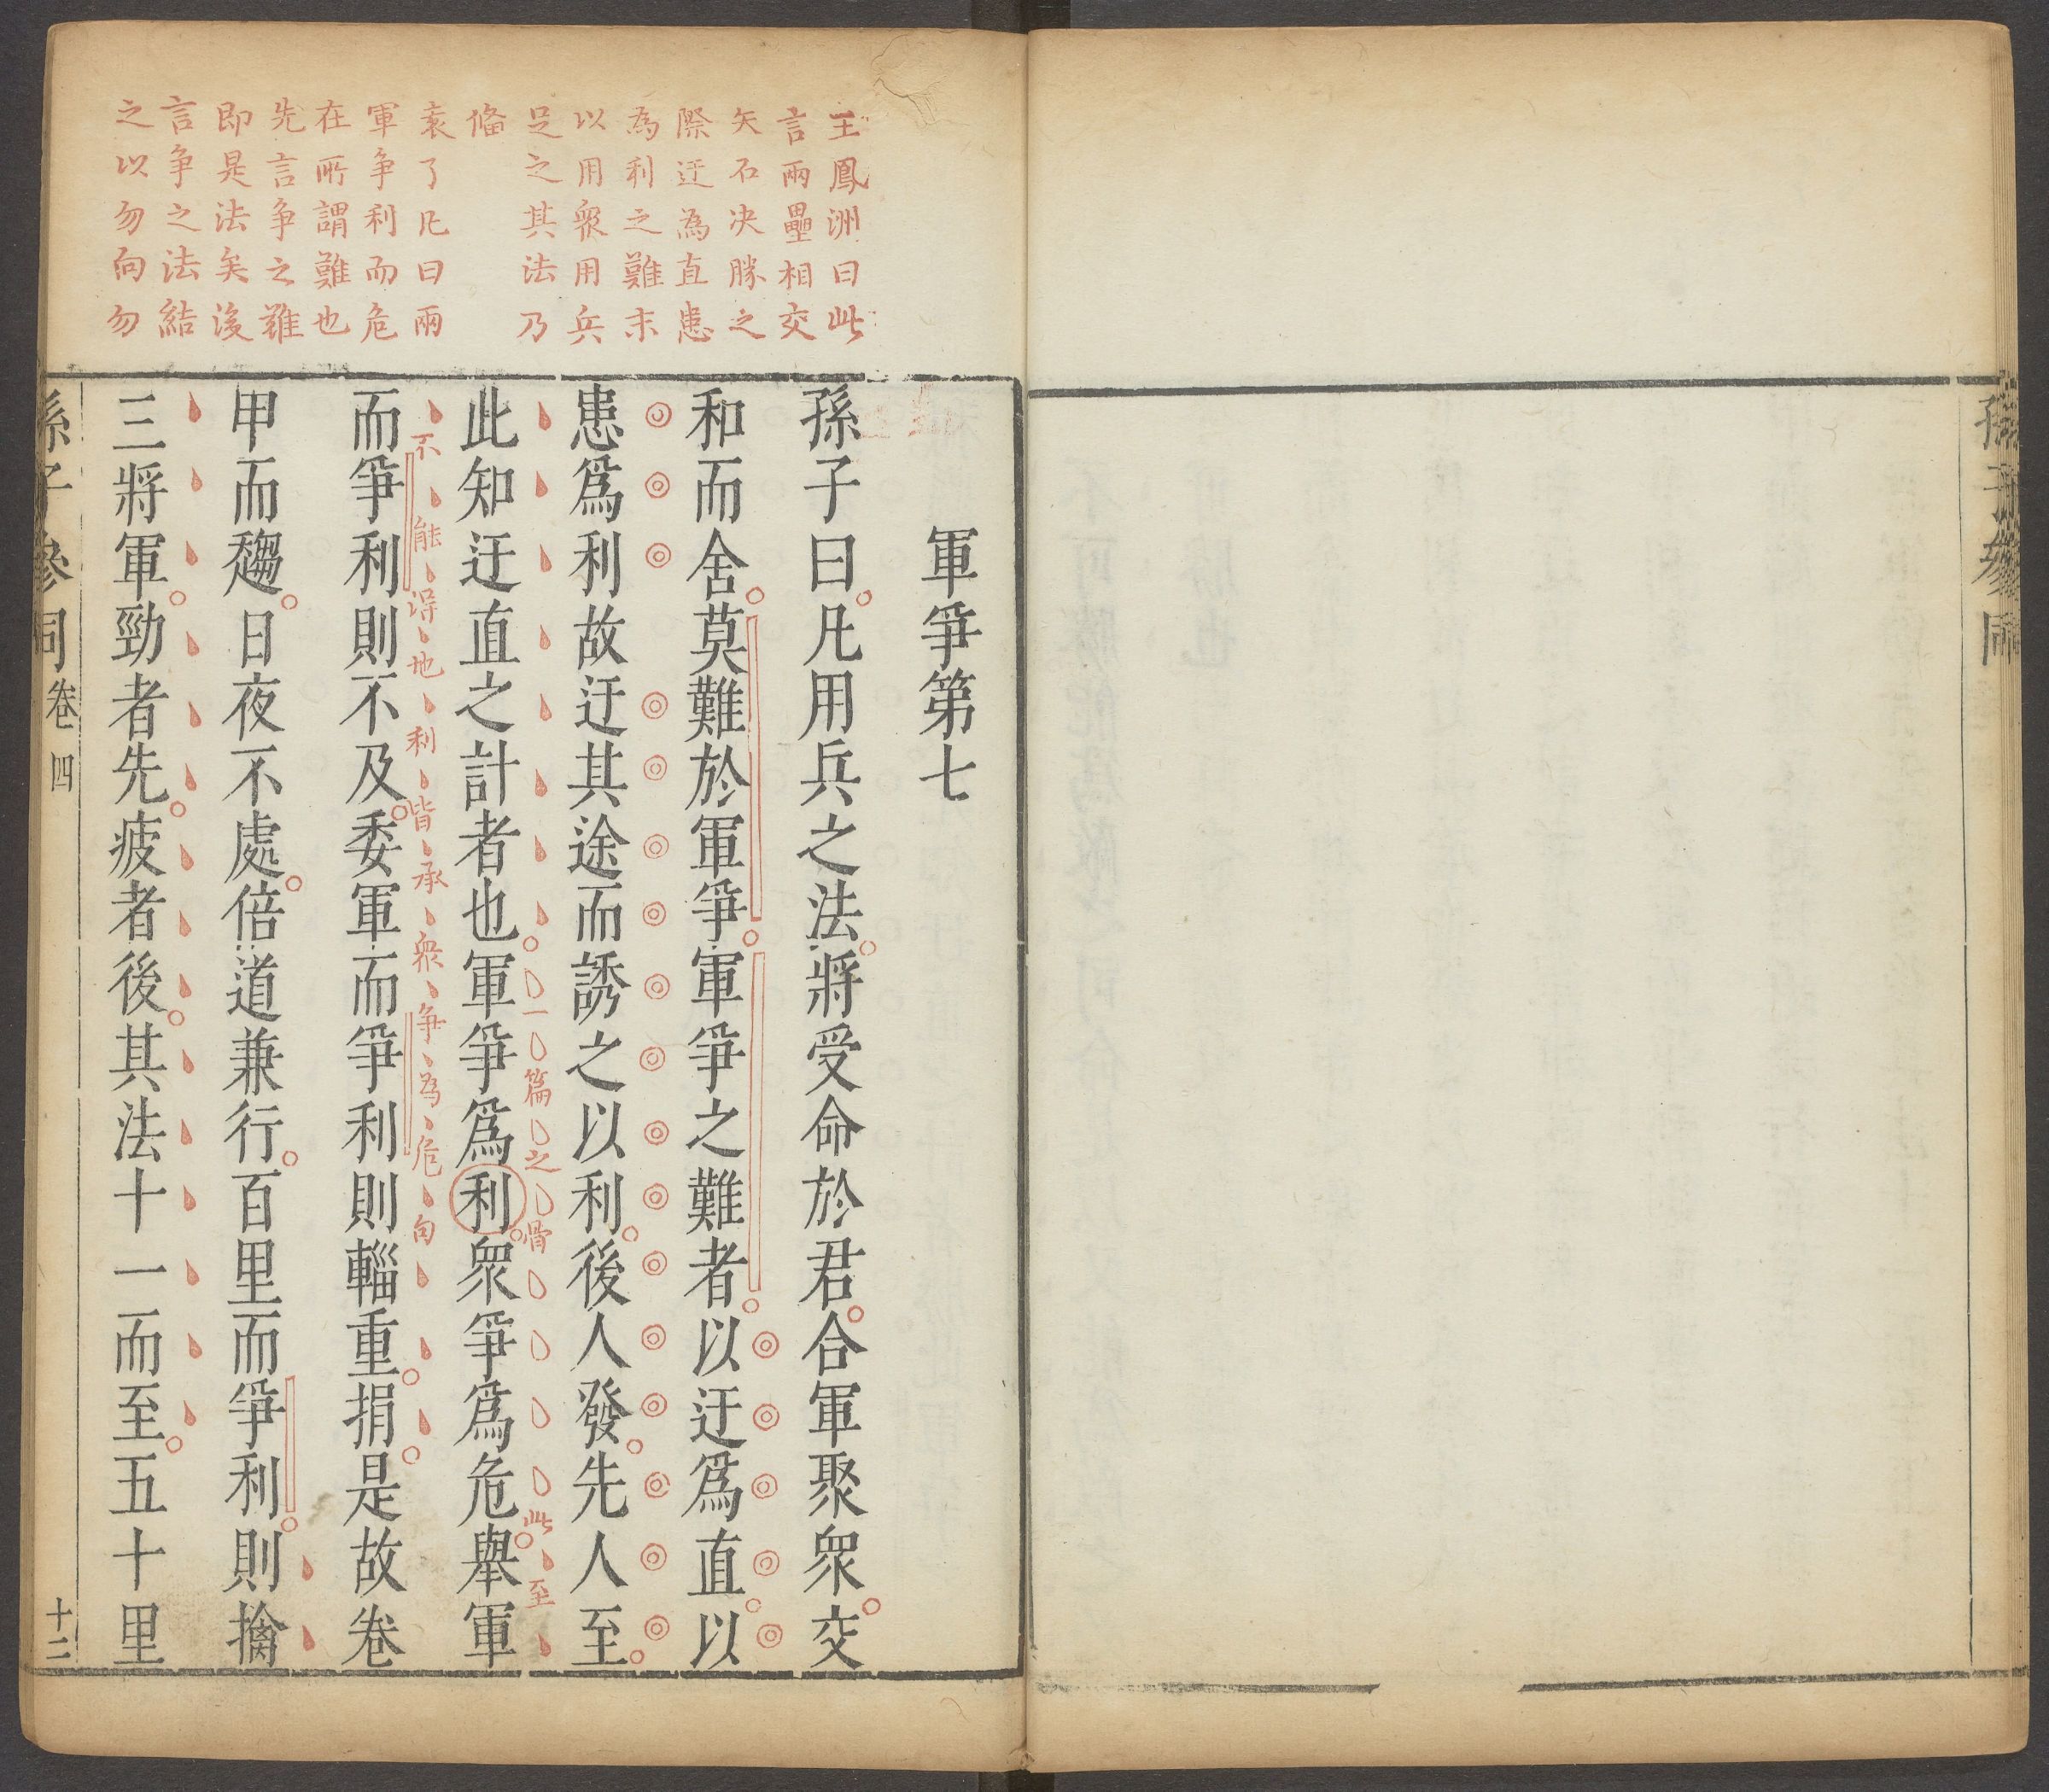 孫子參同
王鳳洲曰此
言兩壘相交
矢石决勝之
際迂為直患
為利之難末
以用衆用兵
足之其法乃
偹
袁了凡曰兩
軍爭利而危
在所謂難也
先言爭之難
即是法矣後
言爭之法結
之以勿向勿
軍爭第七
孫子曰凡用兵之法將受命於君合軍聚衆交
和而舍莫難於軍爭軍爭之難者以迂爲直以
患爲利故迂其途而誘之以利後人發先人至
此知迂直之計者也軍爭爲利衆爭爲危舉軍
一篇之骨
此至
而爭利則不及委軍而爭利則輜重捐是故卷
不能得地利皆承衆爭為危句
甲而趨日夜不處倍道兼行百里而爭利則擒
三將軍勁者先疲者後其法十一而至五十里
孫子參同 卷四 十二